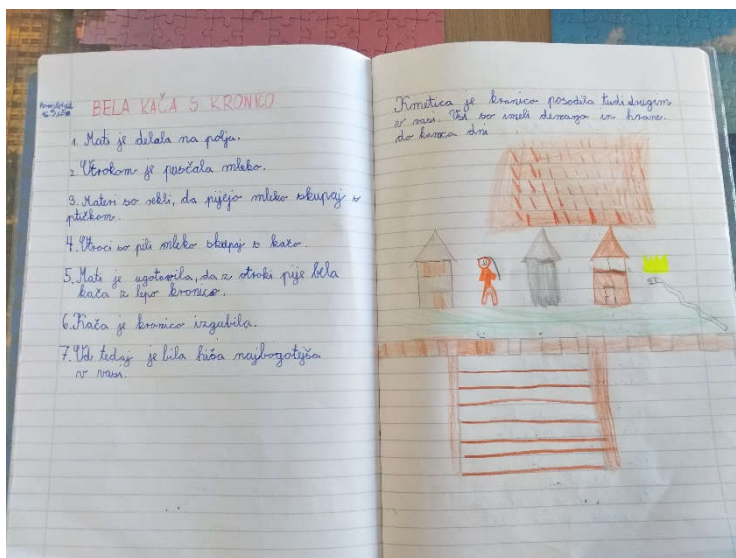 BELA KAČA S KRONICO
1. Mati je delala na polju.
2. Otrokom je puščala mleko.
3. Materi so rekli, da pijejo mleko skupaj s
ptičkom.
4. Otroci so pili mleko skupaj s kačo.
5. Mati je ugotovila, da z otroki pije bela
kača z lepo kronico.
6. Kača je kronico izgubila.
7. Od tedaj je bila hiša najbogotejša
v vasi.
Kmetica je kronico posodila tudi drugim
v vasi. Vsi so imeli denarja in hrane
do konca dni